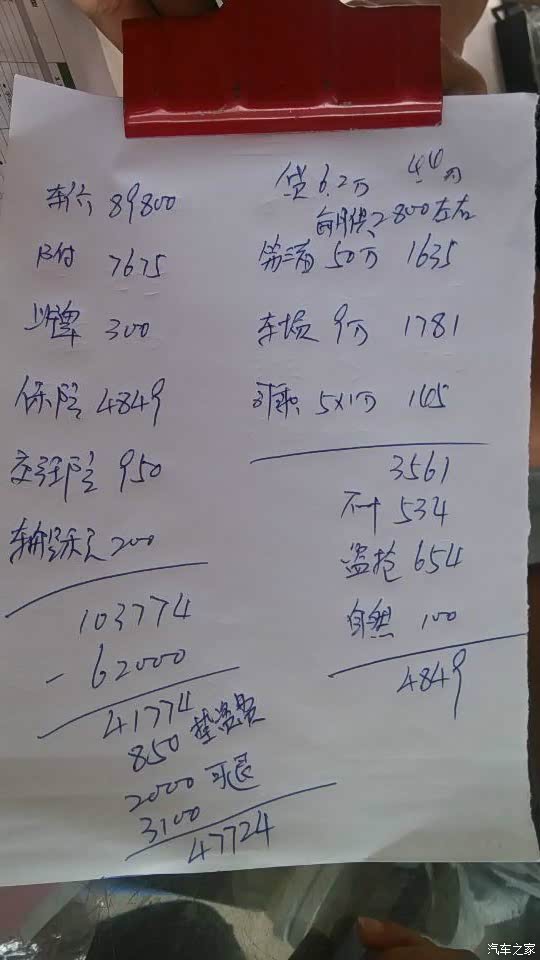 车价 89800
7675
上牌 300
保险 4849
交强险 950
车船 200
103774
- 62000
41774
850 垫资费
2000 可退
3100
47724
贷 6.2万 4.4万
每月供 2800左右
第三 50万 1635
车损 9万 1781
司乘 5×1万 145
3561
不计 534
盗抢 654
自燃 100
4849
汽车之家